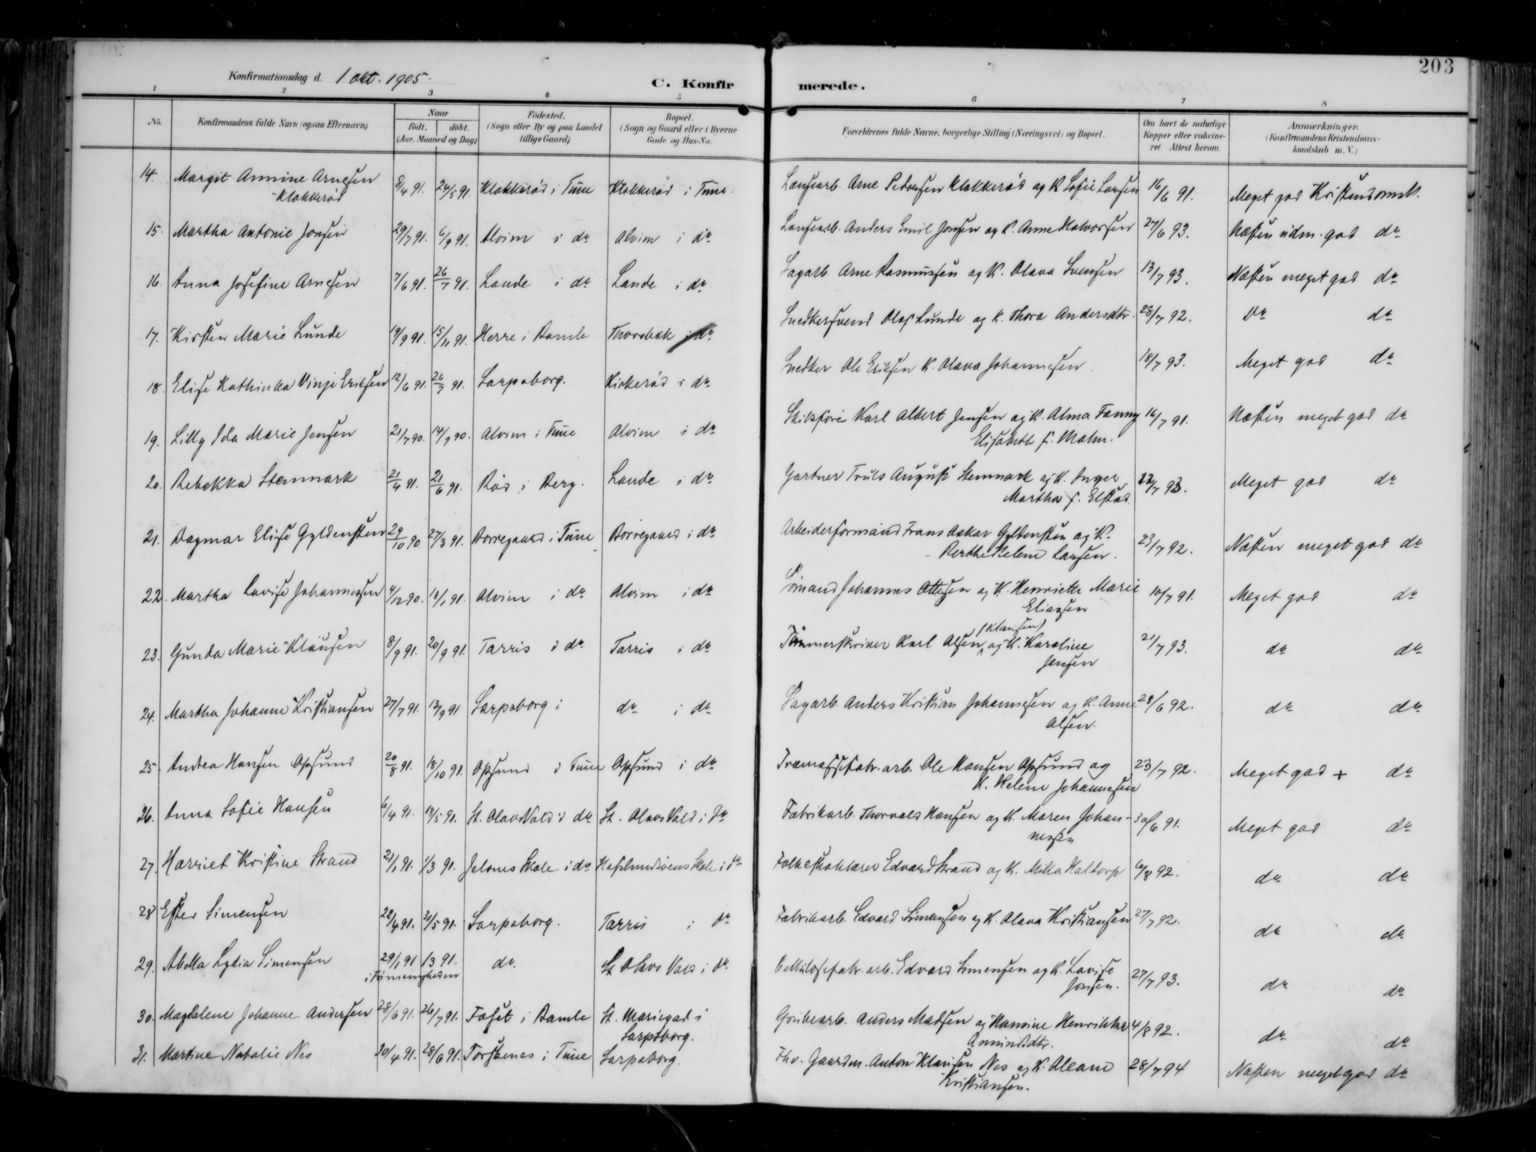 203
Konfirmationsdag d. 1 okt. 1905.
C. Konfirmerede.
1 2 3 4 5 6 7 8
No. Konfirmandens fulde Navn (ogsaa Efternavn) Naar født. døbt. (Aar, Maaned og Dag) Fødested. (Sogn eller By og paa Landet tillige Gaard) Bopæl. (Sogn og Gaard eller i Byerne Gade og Hus-No. Forældrenes fulde Navne, borgerlige Stilling (Næringsvei) og Bopæl. Om havt de naturlige Kopper eller vaccineret. Attest herom. Anmærkninger. (Konfirmandens Kristendomskundskab m. V.)
14. Margit Annine Arnesen 8/4 91. 24/5 91. Klokkerød i Tune Klokkerød i Tune. Løusearb. Arne Pedersen Klokkerød og K. Sofie Larsen 16/6 91. Meget god Kristendomsk.
Klokkerød
15. Martha Antonie Jensen 29/7 91. 6/9 91. Alvim i do Alvim i do Anders Emil Jensen og K. Anne Halvorsen 27/6 93. Næsten udm. god do
16. Anna Josefine Arnesen 7/6 91. 26/7 91. Lande i do Lande i do Sagarb. Arne Rasmussen og K. Olava Svensen 13/7 93. Næsten meget god do
17. Kirsten Marie Lunde 14/9 91. 15/11 91. Herre i Bamle Thorsbæk i do Snedkersvend Olaf Lunde og K. Thora Andersdtr. 28/7 92. Do do
18. Elise Kathinka Vinje Eriksen 12/6 91. 26/7 91. Sarpsborg. Kirkerød i do Snedker Ole Eriksen K. Olava Johannesen. 18/7 93. Meget god do
19. Lilly Ida Marie Jensen 21/7 90. 14/9 90. Alvim i Tune Alvim i do Karl Albert Jensen og K. Alma Fanny 16/7 91. Næsten meget god do
Elisabeth f. Malm.
20. Rebekka Stenmark 21/4 91. 21/6 91. Rød i Berg. Lande i do Gartner Truls August Stenmark og K. Inger 22/7 93. Meget god do
Martha f. Elstad
21. Dagmar Elise Gyldensten 29/10 90 27/3 91. Borregaard i Tune Borregaard i do Arbeiderformand Frans Oskar Gyldensten og K. 23/7 92. Næsten meget god do
Berthe Helene Larsen.
22. Martha Lovise Johannessen 4/12 90. 18/1 91. Alvim i do Alvim i do Sømand Johannes Ottesen og K. Henriette Marie 10/7 91. Meget god do
Eliassen
23. Gunda Marie Klausen 8/9 91. 20/9 91. Tarris i do Tarris i do Tømmerskriver Karl Olsen (Klausen) og K. Karoline 21/7 93. do do
Jensen
24. Martha Johanne Kristiansen 27/7 91. 13/9 91 Sarpsborg i do i do Sagarb. Anders Kristian Johannesen og K. Anne 28/6 92. do do
Olsen.
25. Andrea Hansen Opsund 20/8 91. 18/10 91. Opsund i Tune Opsund i do Træmassefabr. arb. Ole Hansen Opsund og 23/7 92. Meget god + do
K. Helene Johannesen
26. Anna Sofie Hansen 6/4 91. 18/5 91. St. Olavs Vold i do St. Olavs Vold i do Fabrikarb. Thorvald Hansen og K. Maren Johan- 30/6 91. Meget god do
nesen
27. Harriet Kristine Strand 21/1 91. 1/3 91. Jelønes Skole i do Hafslundsøens Skole i do Folkeskolelærer Edvard Strand og K. Milla Haltorp 6/8 92. do do
28. Ester Simensen 22/4 91. 21/5 91. Sarpsborg. Tarris i do Fabrikarb. Edvard Simensen og K. Olava Kristiansen 27/7 92. do do
29. Abella Lydia Simensen 29/1 91 1/3 91. do. St. Olavs Vold i do Cellulosefabr. arb. Edvard Simensen og K. Lovise 27/7 93. do do
i Foreningheden Jonsen.
30. Magdalene Johanne Andersen 28/6 91. 26/7 91. Foset i Bamle St. Mariegad i Grubearb. Anders Madsen og Hansine Henrikke 4/8 92. do do
Sarpsborg. Amundsdtr.
31. Martine Natalie Nes 30/4 91. 28/6 91. Torsbenes i Tune Sarpsborg. Fhv. Gaardm. Anton Klausen Nes og K. Oleane 28/7 94 Næsten meget god do
Kristiansen.